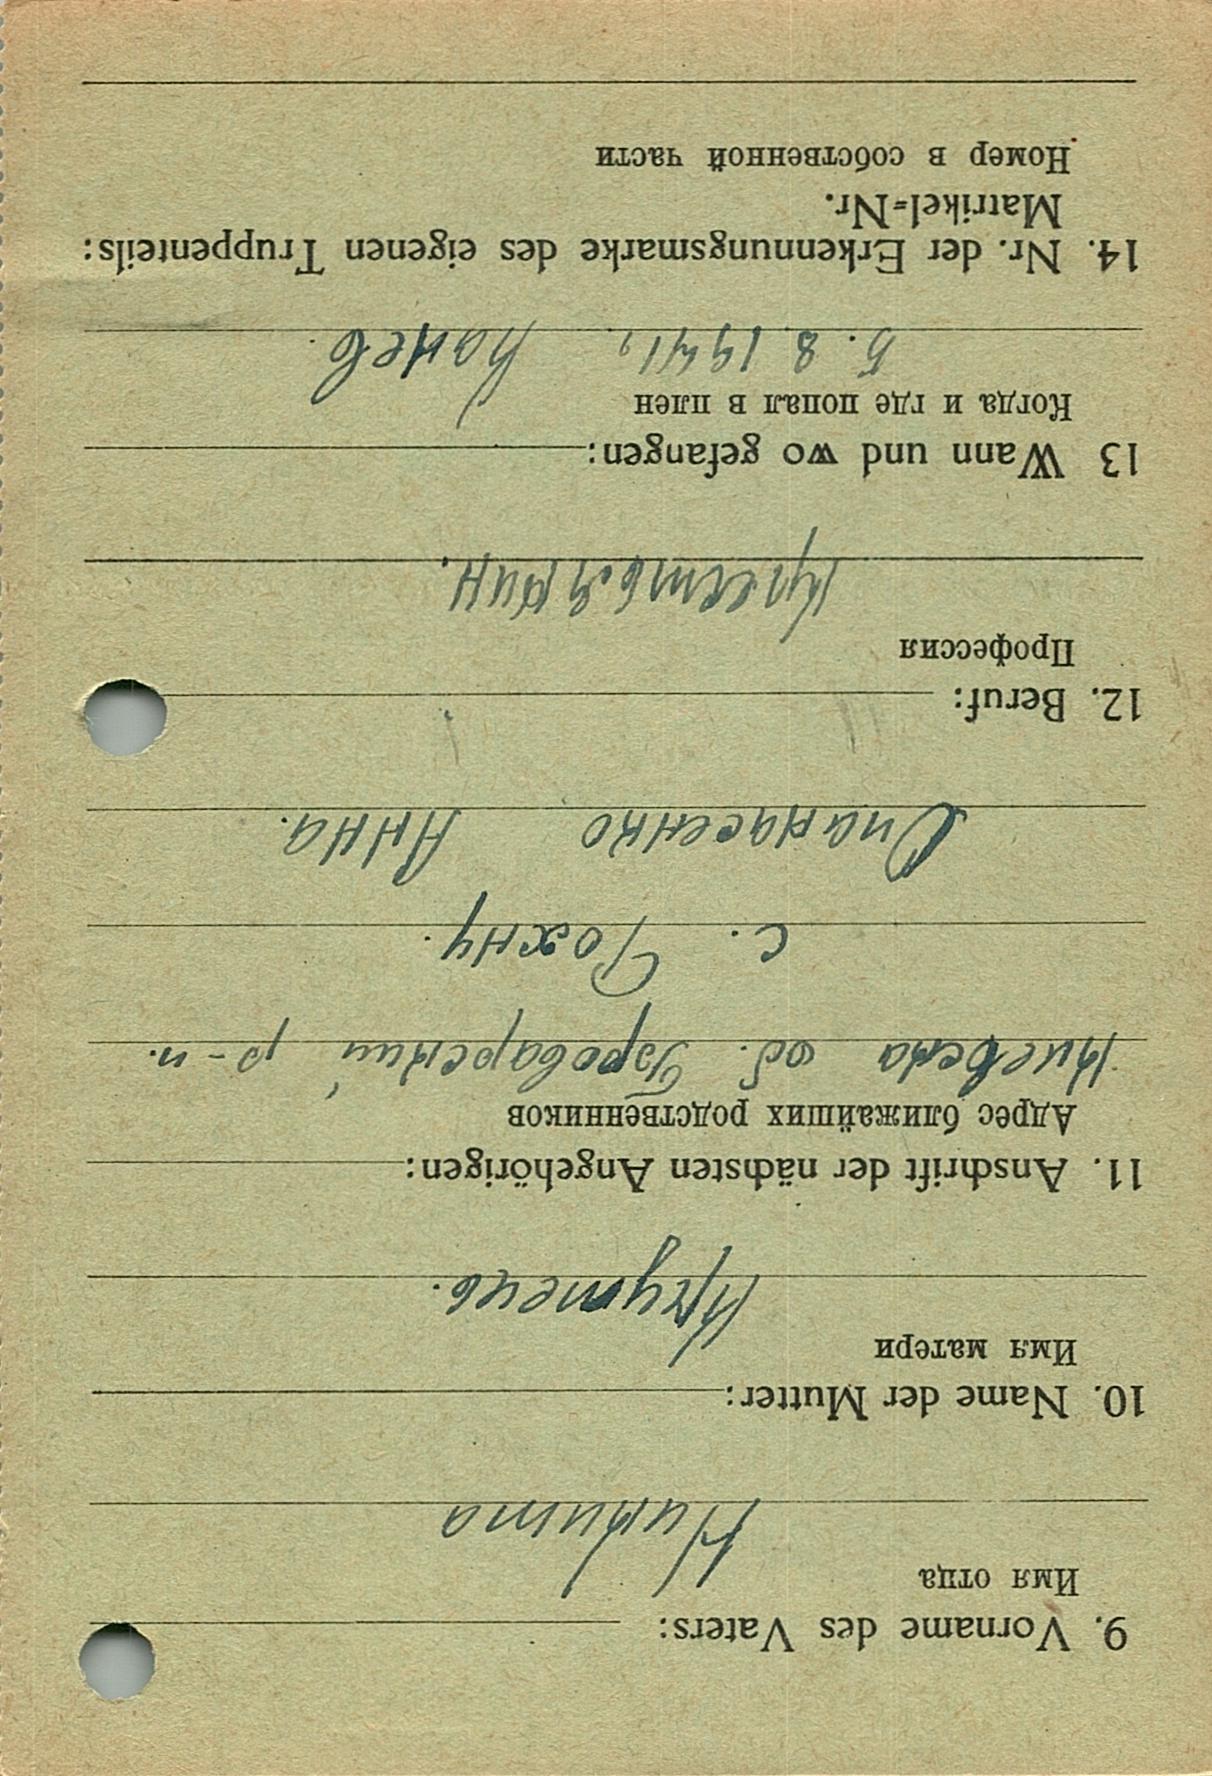 9. Vorname des Vaters:
Имя отца
Никита
10. Name der Mutter:
Имя матери
11. Anschrift der nächsten Angehörigen:
Адрес ближайших родственников
Киевска об. Броварский р-н.
с. Рожну.
Опанасенко Анна.
12. Beruf:
Профессия
Крестьянин.
13 Wann und wo gefangen:
Когда и где попал в плен
5.8.1941, Канев.
14. Nr. der Erkennungsmarke des eigenen Truppenteils:
Matrikel=Nr.
Номер в собственной части